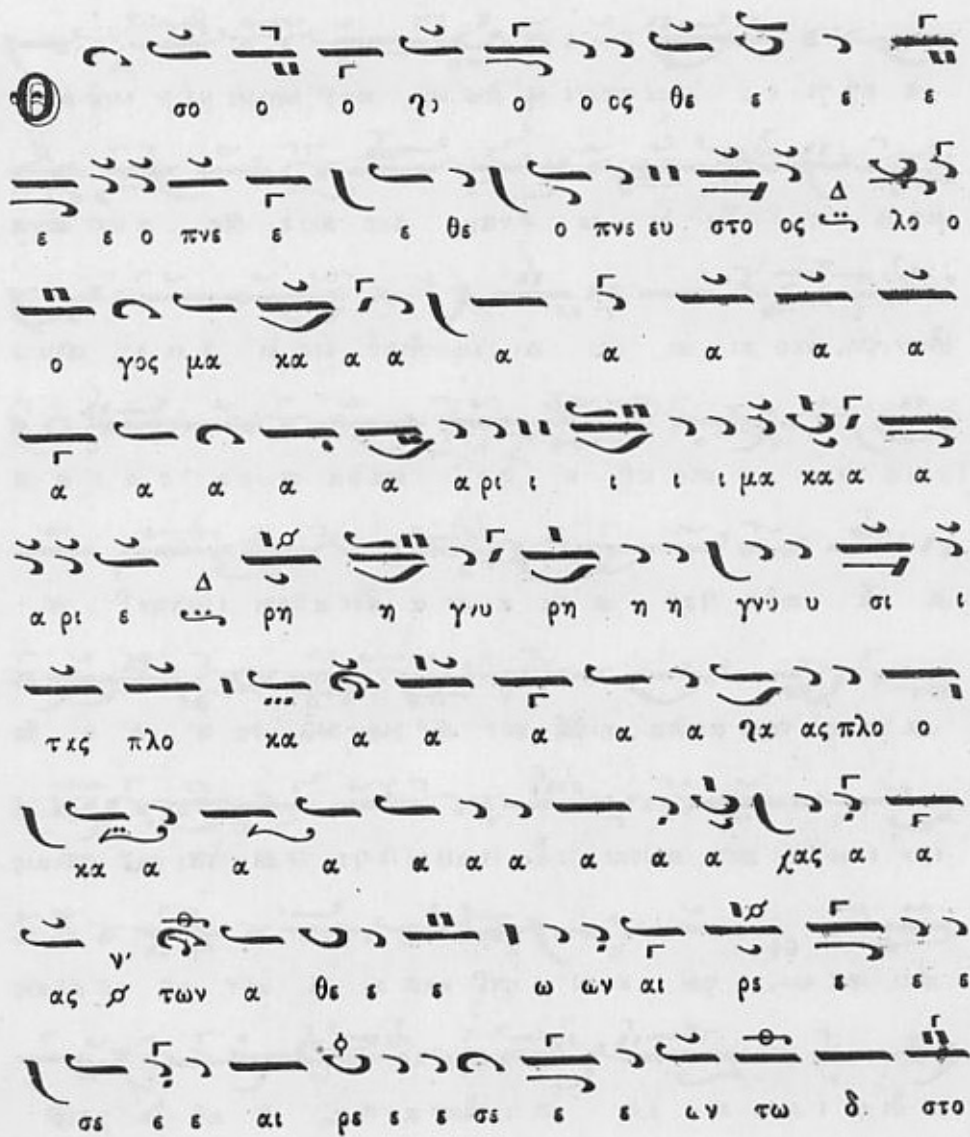 Θ σο ο ο ȣ ο ο ος θε ε ε ε
ε ε ο πνε ε ε θε ο πνε ευ στο ος Δ λο ο
ο γος μα κα α α α α α α α
α α α α α α ρι ι ι ι ι μα κα α α
α ρι ε Δ ρη η γνυ ρη η η γνυ υ σι ι
τας πλο κα α α α α α ȣα ας πλο ο
κα α α α α α α α α α χας α α
ας ν' των α θε ε ε ω ων αι ρε ε ε ε
σε ε ε αι ρε ε ε σε ε ε ων τω δ στο